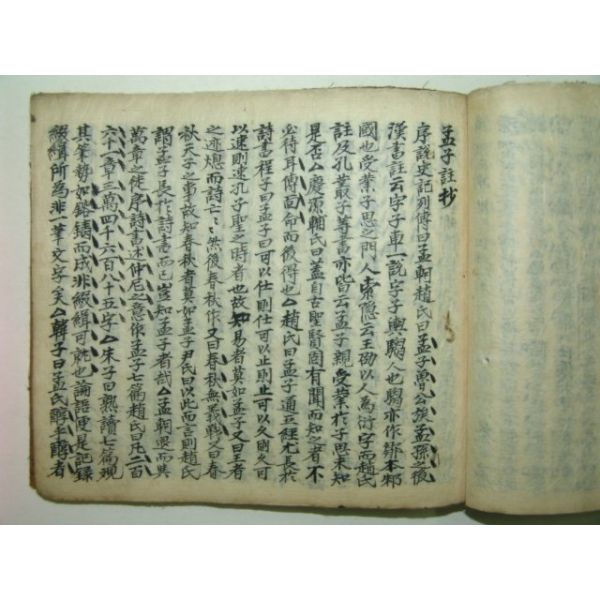 孟子註抄
序說史記列傳曰孟軻趙氏曰孟子魯公族孟孫之後
漢書註云字子車一說字子輿騶人也騶亦作鄒本邾
國也受業子思之門人索隱云王劭以人爲衍字而趙氏
註及孔叢子等書亦皆云孟子親受業於子思未知
是否△慶源輔氏曰盖自古聖賢固有聞而知之者不
必待耳傳面命而後得也△趙氏曰孟子通五經尤長於
詩書程子曰孟子曰可以仕則仕可以止則止可以久則久可
以速則速孔子聖之時者也故知易者莫如孟子又曰王者
之迹熄而詩亡〻然後春秋作又曰春秋無義戰又曰春
秋天子之事故知春秋者莫如孟子尹氏曰以此而言則趙氏
謂孟子長於詩書而已豈知孟子者哉△孟軻退而與
萬章之徒序詩書述仲尼之意作孟子七篇趙氏曰凡二百
六十一章三萬四千六百八十五字△朱子曰熟讀七篇觀
其筆勢如鎔鑄而成非綴緝可就也論語便是記錄
綴緝所爲非一筆文字矣△韓子曰孟氏醇乎醇者